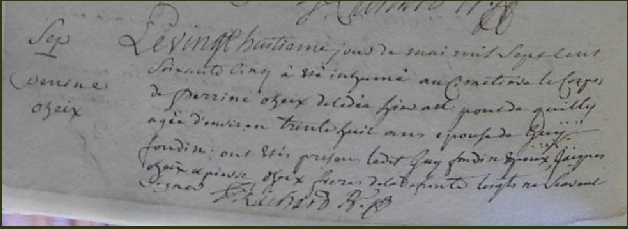 Sep
Perrine
oheix
Le vingt huitieme jour de mai mil sept cent
soixante cinq à été inhumé au Cimetiere le Corps
de perrine oheix decedée hier au pont de quilly
agée d'environ trente huit ans epouse de Guy
fondin. ont étés presens ledit Guy fondin epoux, jacques
oheix et pierre oheix freres de la defunte lesquels ne scavent
signer